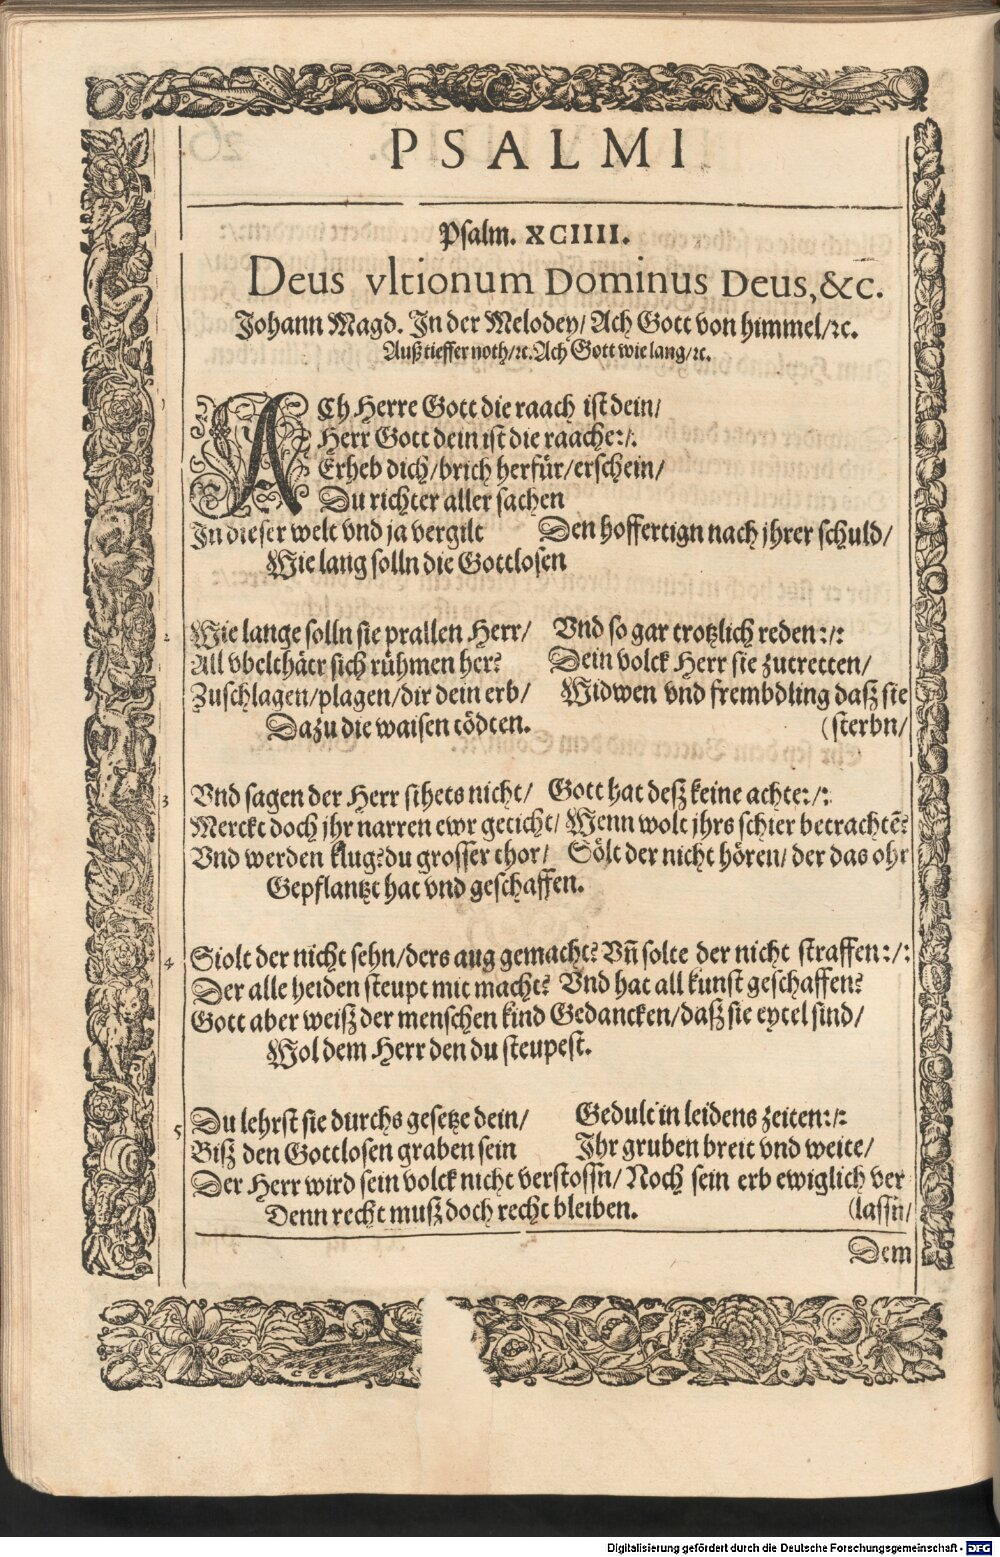 PSALMI
Psalm. XCIIII.
Deus vltionum Dominus Deus, &c.
Johann Magd. In der Melodey/ Ach Gott von himmel/ꝛc.
Auß tieffer noth/ꝛc. Ach Gott wie lang/ꝛc.
1
ACh Herre Gott die raach ist dein/
Herr Gott dein ist die raache:/:
Erheb dich/brich herfür/erschein/
Du richter aller sachen
In dieser welt vnd ja vergilt Den hoffertign nach jhrer schuld/
Wie lang solln die Gottlosen
2 Wie lange solln sie prallen Herr/ Vnd so gar trotzlich reden:/:
All vbelthäter sich rühmen her? Dein volck Herr sie zutretten/
Zuschlagen/plagen/dir dein erb/ Widwen vnd frembdling dasz sie
Dazu die waisen tödten. (sterbn/
3 Vnd sagen der Herr sihets nicht/ Gott hat desz keine achte:/:
Merckt doch jhr narren ewr geticht/ Wenn wolt jhrs schier betrachtē?
Vnd werden klug? du grosser thor/ Sölt der nicht hören/ der das ohr
Gepflantzt hat vnd geschaffen.
4 Siolt der nicht sehn/ders aug gemacht? Vn̄ solte der nicht straffen:/:
Der alle heiden steupt mit macht? Vnd hat all kunst geschaffen?
Gott aber weisz der menschen kind Gedancken/dasz sie eytel sind/
Wol dem Herr den du steupest.
5 Du lehrst sie durchs gesetze dein/ Gedult in leidens zeiten:/:
Bisz den Gottlosen graben sein Ihr gruben breit vnd weite/
Der Herr wird sein volck nicht verstossn/ Noch sein erb ewiglich ver
Denn recht musz doch recht bleiben. (lassn/
Dem
Digitalisierung gefördert durch die Deutsche Forschungsgemeinschaft - DFG